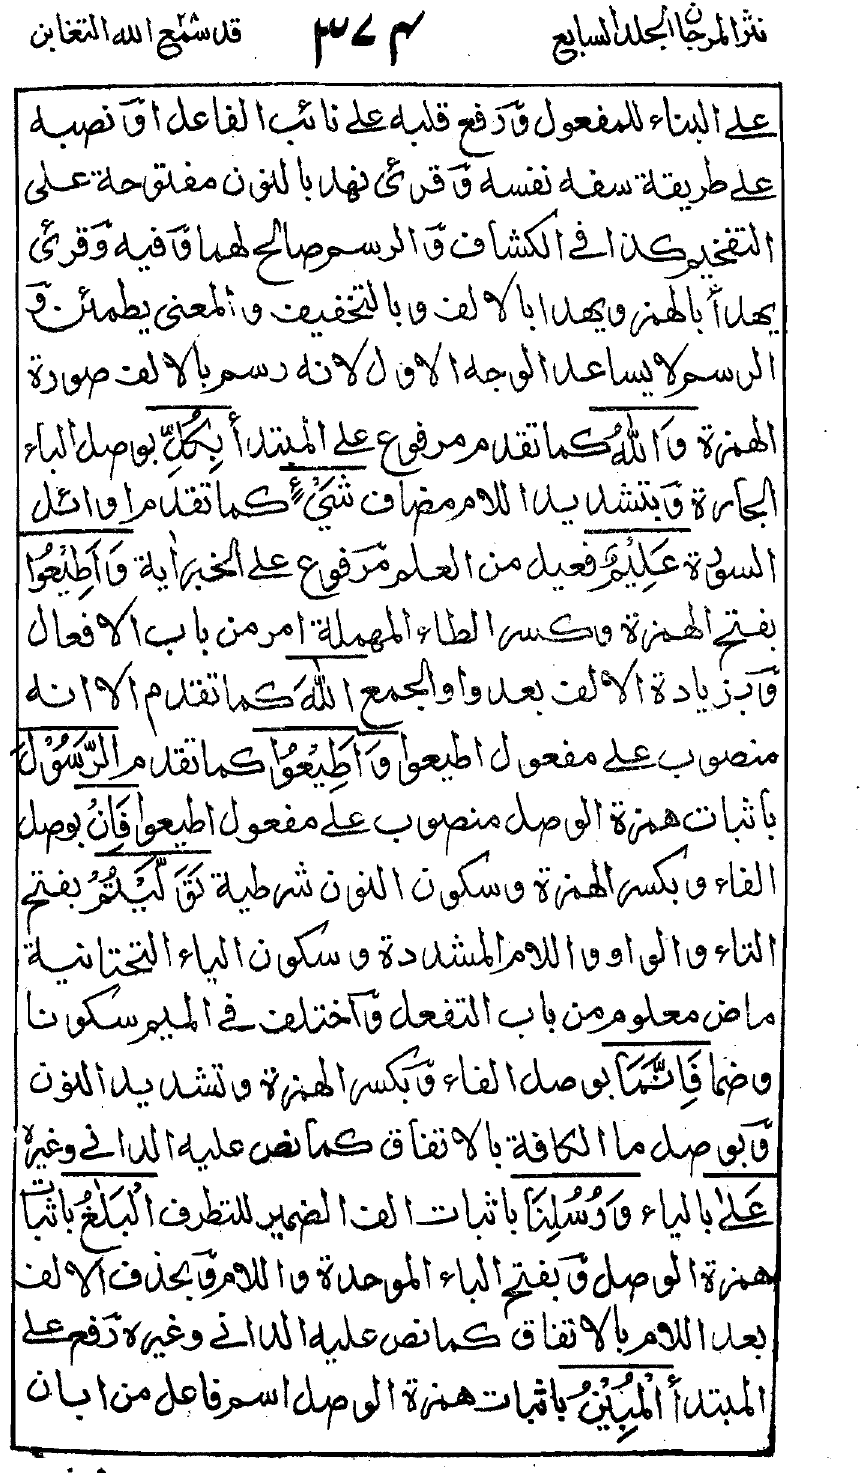 نثر المرجان الجلد السابع ٣٧٤ قد سمع الله التغابن
على البناء للمفعول و رفع قلبه على نائب الفاعل او نصبه
على طريقة سفه نفسه و قرئ نهد بالنون مفتوحة على
التفخيم كذا في الكشاف و الرسم صالح لهما و فيه و قرئ
يهدأ بالهمز و يهدا بالالف و بالتخفيف و المعنى يطمئن و
الرسم لا يساعد الوجه الاول لانه رسم بالالف صورة
الهمزة وَاللهُ كما تقدم مرفوع على المبتدأ بِكُلِّ بوصل الباء
الجارة و بتشديد اللام مضاف شَيْءٍ كما تقدم اوائل
السورة عَلِيْمٌ فعيل من العلم مرفوع على الخبرية وَاَطِيْعُوا
بفتح الهمزة و كسر الطاء المهملة امر من باب الافعال
و بزيادة الالف بعد واو الجمع اللهَ كما تقدم الا انه
منصوب على مفعول اطيعوا وَاَطِيْعُوا كما تقدم الرَّسُوْلَ
باثبات همزة الوصل منصوب على مفعول اطيعوا فَاِنْ بوصل
الفاء و بكسر الهمزة و سكون النون شرطية تَوَلَّيْتُمْ بفتح
التاء و الواو و اللام المشددة و سكون الياء التحتانية
ماض معلوم من باب التفعل و اختلف في الميم سكونا
و ضما فَاِنَّمَا بوصل الفاء و بكسر الهمزة و تشديد النون
و بوصل ما الكافة بالاتفاق كما نص عليه الداني و غيره
عَلىٰ بالياء و رَسُوْلِنَا باثبات الف الضمير للتطرف الْبَلٰغُ باثبات
همزة الوصل و بفتح الباء الموحدة و اللام و بحذف الالف
بعد اللام بالاتفاق كما نص عليه الداني و غيره رفع على
المبتدأ الْمُبِيْنُ باثبات همزة الوصل اسم فاعل من ابان